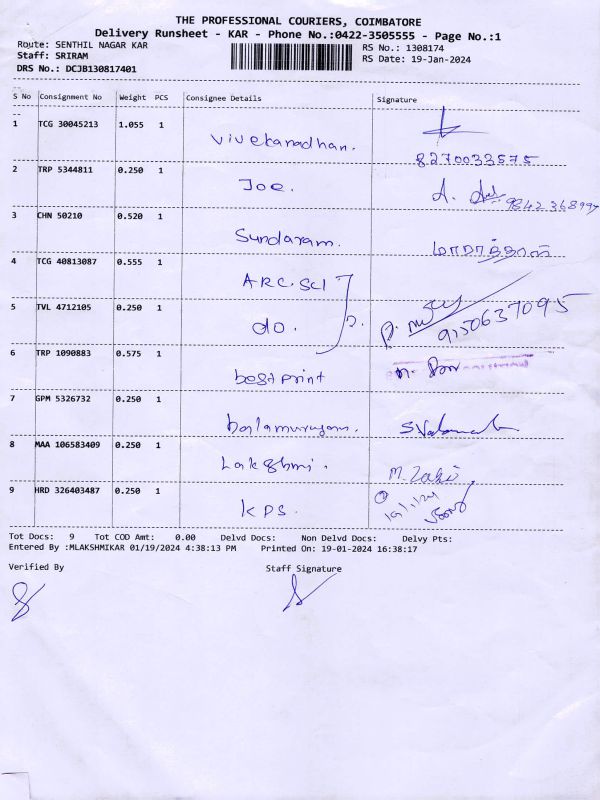 THE PROFESSIONAL COURIERS, COIMBATORE
Delivery Runsheet - KAR - Phone No.:0422-3505555 - Page No.:1
Route: SENTHIL NAGAR KAR RS No.: 1308174
Staff: SRIRAM RS Date: 19-Jan-2024
DRS No.: DCJB130817401
S No Consignment No Weight PCS Consignee Details Signature
1 TCG 30045213 1.055 1
8270033575
2 TRP 5344811 0.250 1 Joe.
3 CHN 50210 0.520 1 Sundaram.
4 TCG 40813087 0.555 1 ARC. SCI
5 TVL 4712105 0.250 1 do. 9150637095
6 TRP 1090883 0.575 1 best print
7 GPM 5326732 0.250 1 balamurugan.
8 MAA 106583409 0.250 1 Lakshmi.
9 HRD 326403487 0.250 1 KPS.
Tot Docs: 9 Tot COD Amt: 0.00 Delvd Docs: Non Delvd Docs: Delvy Pts:
Entered By :MLAKSHMIKAR 01/19/2024 4:38:13 PM Printed On: 19-01-2024 16:38:17
Verified By Staff Signature